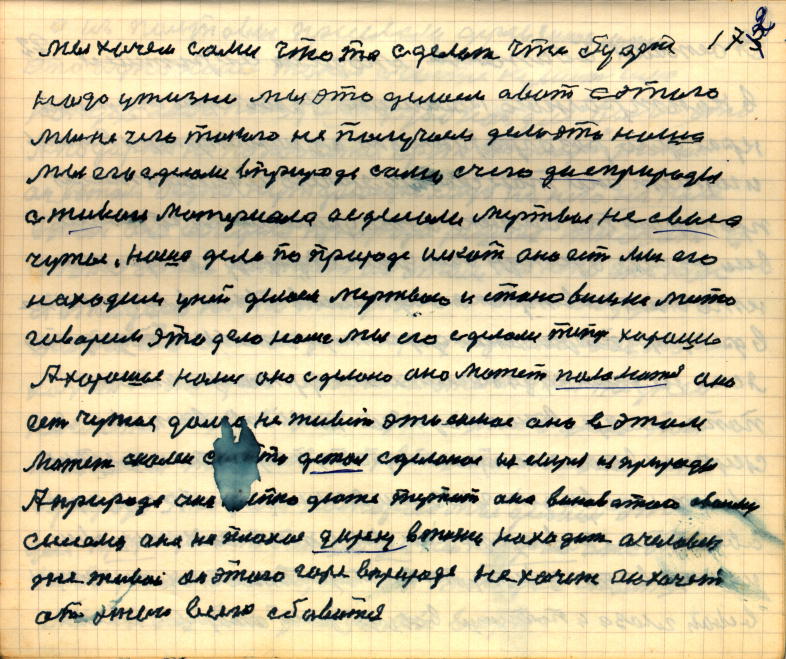 мы хочем сами что то сделат что будет 172
надо ужизни мы это делаем авот сэтого
мы не чего такого не получаем дело это наша
мы его сделали вприроде сами счего дисприроды
стакой материала асделали мертвое не свое
чужое. Наша дело по природе искат ано ест мы его
находим уней делаем мертвого и становим на место
говорим это дело наше мы его сделали типр хорошо
А хорошае нами ано сделано ано может паламатя ано
ест чужое долго не живет это самое ано в этом
может сделоное из
А природа ана дюже терпит ана виноватого своему
ана не плохое дирку вжизни находит ачеловек
уже живой он этого горя вприроде не хочет онхочет
от этого всего сбавитя